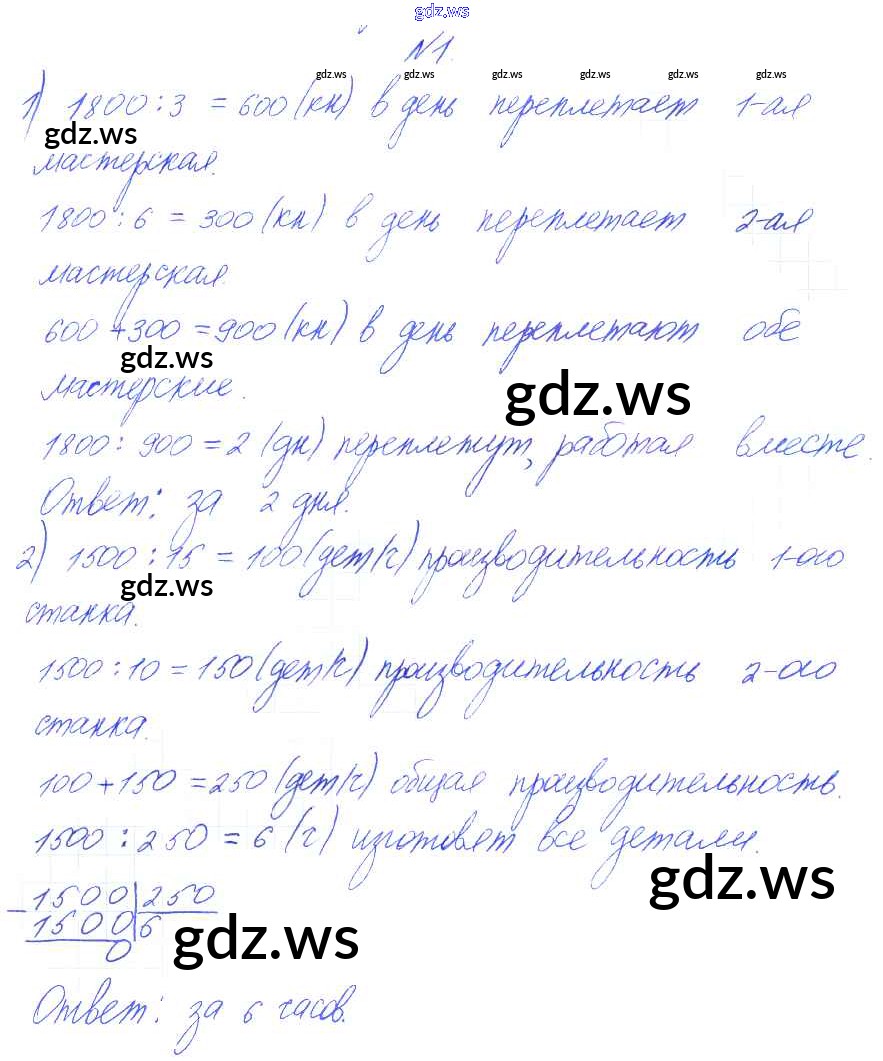 gdz.ws
№1.
gdz.ws gdz.ws gdz.ws gdz.ws gdz.ws
1) 1800 : 3 = 600 (кн) в день переплетает 1-ая
gdz.ws
мастерская.
1800 : 6 = 300 (кн) в день переплетает 2-ая
мастерская.
600 + 300 = 900 (кн) в день переплетают обе
gdz.ws
мастерские.
gdz.ws
1800 : 900 = 2 (дн) переплетут, работая вместе.
Ответ: за 2 дня.
2) 1500 : 15 = 100 (дет/ч) производительность 1-ого
gdz.ws
станка.
1500 : 10 = 150 (дет/ч) производительность 2-ого
станка.
100 + 150 = 250 (дет/ч) общая производительность.
1500 : 250 = 6 (ч) изготовят все детали.
gdz.ws
- 1500 | 250
1500 | 6
0
gdz.ws
Ответ: за 6 часов.